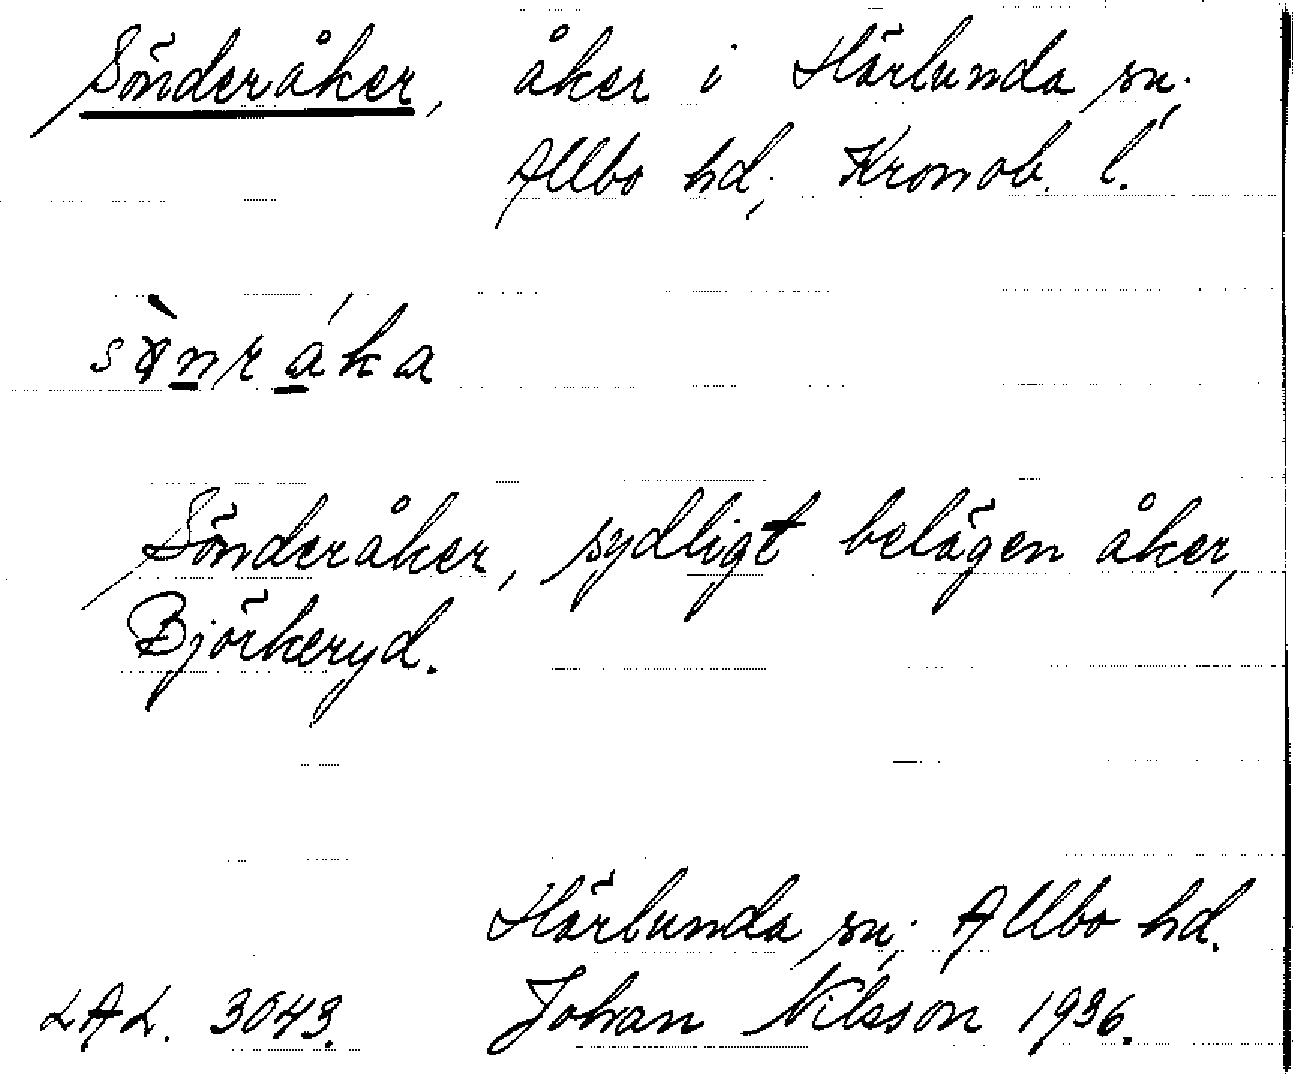 Sönderåker, åker i Härlunda sn,
Allbo hd, Kronob. l.
Sönderåker, sydligt belägen åker,
Björkeryd.
Härlunda sn, Allbo hd.
LAL. 3043. Johan Nilsson 1936.